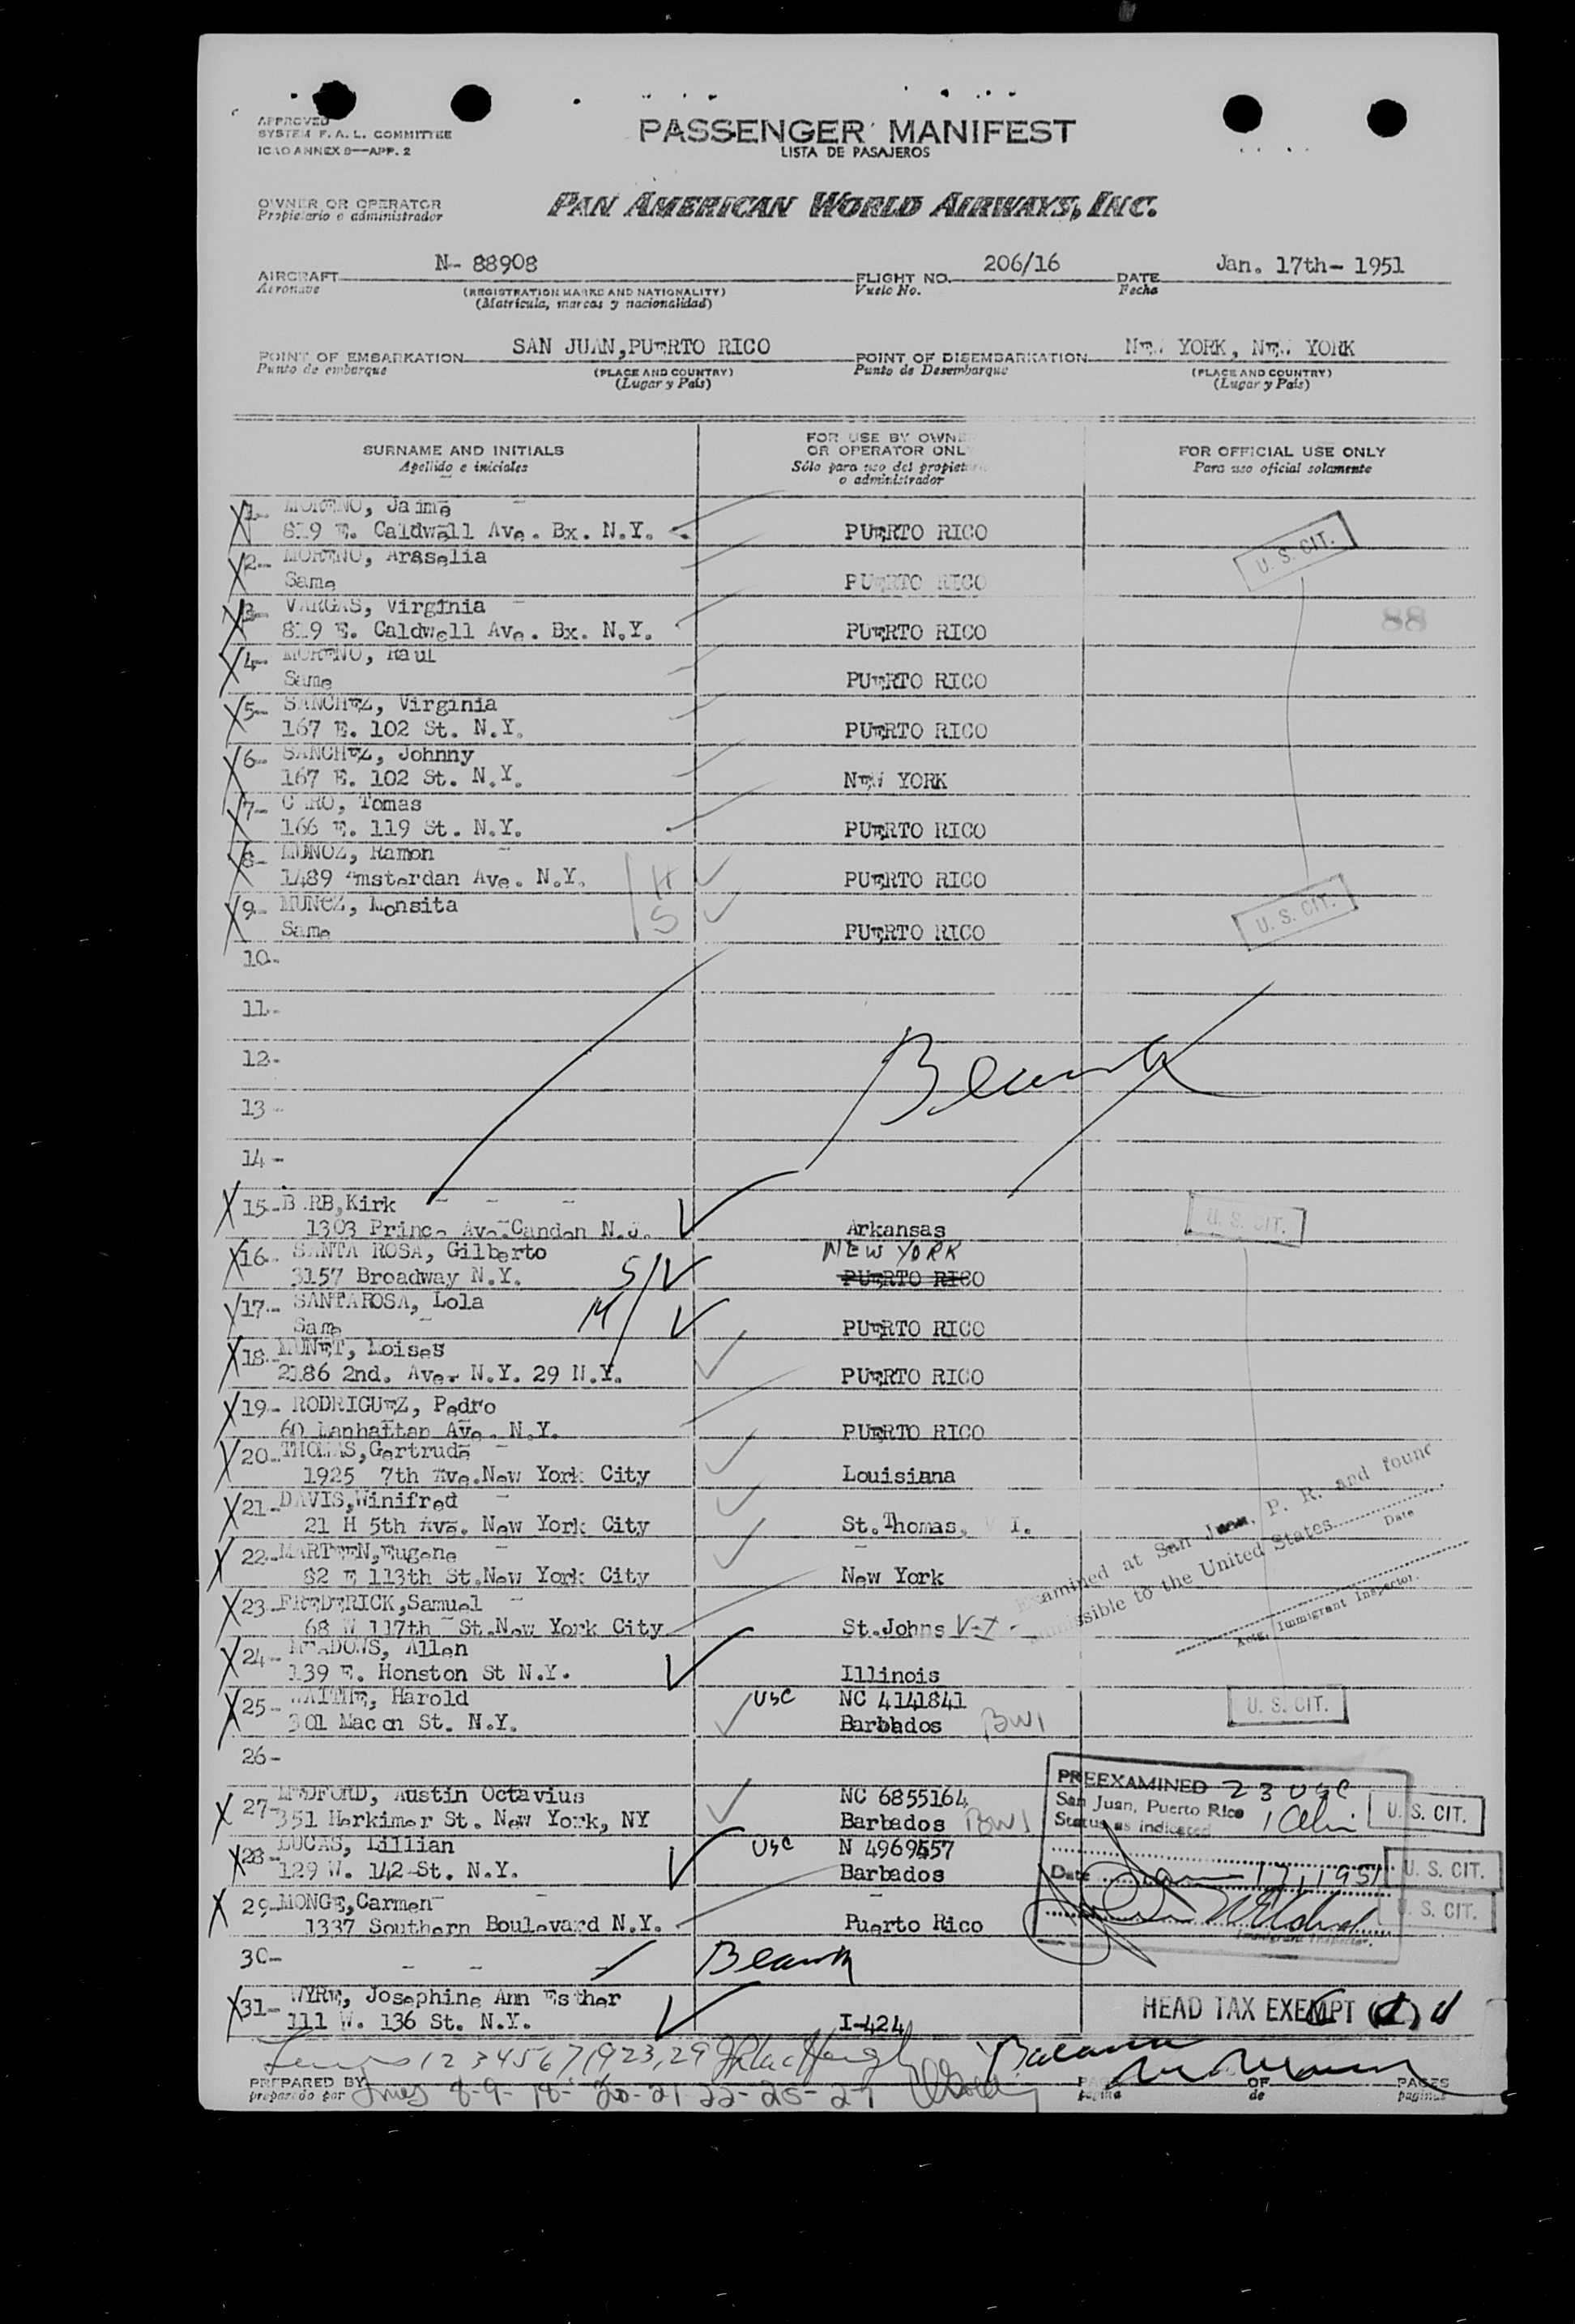 APPROVED
SYSTEM F. A. L. COMMITTEE
ICAO ANNEX 9—APP. 2
PASSENGER MANIFEST
LISTA DE PASAJEROS
OWNER OR OPERATOR
Propietario o administrador
PAN AMERICAN WORLD AIRWAYS, INC.
AIRCRAFT N- 88908 FLIGHT NO. 206/16 DATE Jan. 17th- 1951
Aeronave (REGISTRATION MARKS AND NATIONALITY) Vuelo No. Fecha
(Matrícula, marcas y nacionalidad)
POINT OF EMBARKATION SAN JUAN,PUERTO RICO POINT OF DISEMBARKATION NEW YORK, NEW YORK
Punto de embarque (PLACE AND COUNTRY) Punto de Desembarque (PLACE AND COUNTRY)
(Lugar y País) (Lugar y País)
SURNAME AND INITIALS
Apellido e iniciales
FOR USE BY OWNE
OR OPERATOR ONL
Sólo para uso del propietar
o administrador
FOR OFFICIAL USE ONLY
Para uso oficial solamente
1- MORENO, Jaime
819 E. Caldwell Ave. Bx. N.Y. PUERTO RICO
U. S. CIT.
2- MORENO, Araselia
Same PUERTO RICO
3- VARGAS, Virginia
88
819 E. Caldwell Ave. Bx. N.Y. PUERTO RICO
4- MORENO, Raul
Same PUERTO RICO
5- SANCHEZ, Virginia
167 E. 102 St. N.Y. PUERTO RICO
6- SANCHEZ, Johnny
167 E. 102 St. N.Y. NEW YORK
7- C RO, Tomas
166 E. 119 St. N.Y. PUERTO RICO
8- MUNOZ, Ramon
1489 Amsterdan Ave. N.Y. H PUERTO RICO
9- MUNOZ, Monsita S
Same PUERTO RICO
U. S. CIT.
10-
11-
12-
13-
14-
15- B RB,Kirk
1303 Prince Ave.Canden N.J. Arkansas
U. S. CIT.
16- SANTA ROSA, Gilberto NEW YORK
3157 Broadway N.Y. S PUERTO RICO
17- SANTAROSA, Lola M
Same PUERTO RICO
18- MUNET, Moises
2186 2nd. Ave. N.Y. 29 N.Y. PUERTO RICO
19- RODRIGUEZ, Pedro
60 Manhattan Ave. N.Y. PUERTO RICO
20- THOMAS,Gertrude
1925 7th Ave.New York City Louisiana
21- DAVIS,Winifred
21 H 5th Ave. New York City St.Thomas, V I.
22- MARTEEN,Eugene
82 E 113th St.New York City New York
Examined at San Juan, P. R. and found
admissible to the United States
Date
Actg. Immigrant Inspector.
23- FREDERICK,Samuel
68 W 117th St.New York City St.Johns V-I
24- MEADOWS, Allen
139 E. Honston St N.Y. Illinois
25- WAITHE, Harold USC NC 4141841
301 Macon St. N.Y. Barbados BWI
U. S. CIT.
26-
27- MEDFORD, Austin Octavius NC 6855164
351 Herkimer St. New York, NY Barbados BWI
PREEXAMINED 23 USC
San Juan, Puerto Rico
Status as indicated 1 Alien
U. S. CIT.
28- LUCAS, Lillian USC N 4969557
129 W. 142 St. N.Y. Barbados
Date Jan 17, 1951
U. S. CIT.
29- MONGE,Carmen
1337 Southern Boulevard N.Y. Puerto Rico
U. S. CIT.
Immigrant Inspector.
30-
31- WYRE, Josephine Ann Esther
111 W. 136 St. N.Y. I-424
HEAD TAX EXEMPT
1 2 3 4 5 6 7, 19 23, 29
PREPARED BY 8-9-18-20-21-22-25-27 PAGE OF PAGES
preparado por página de páginas